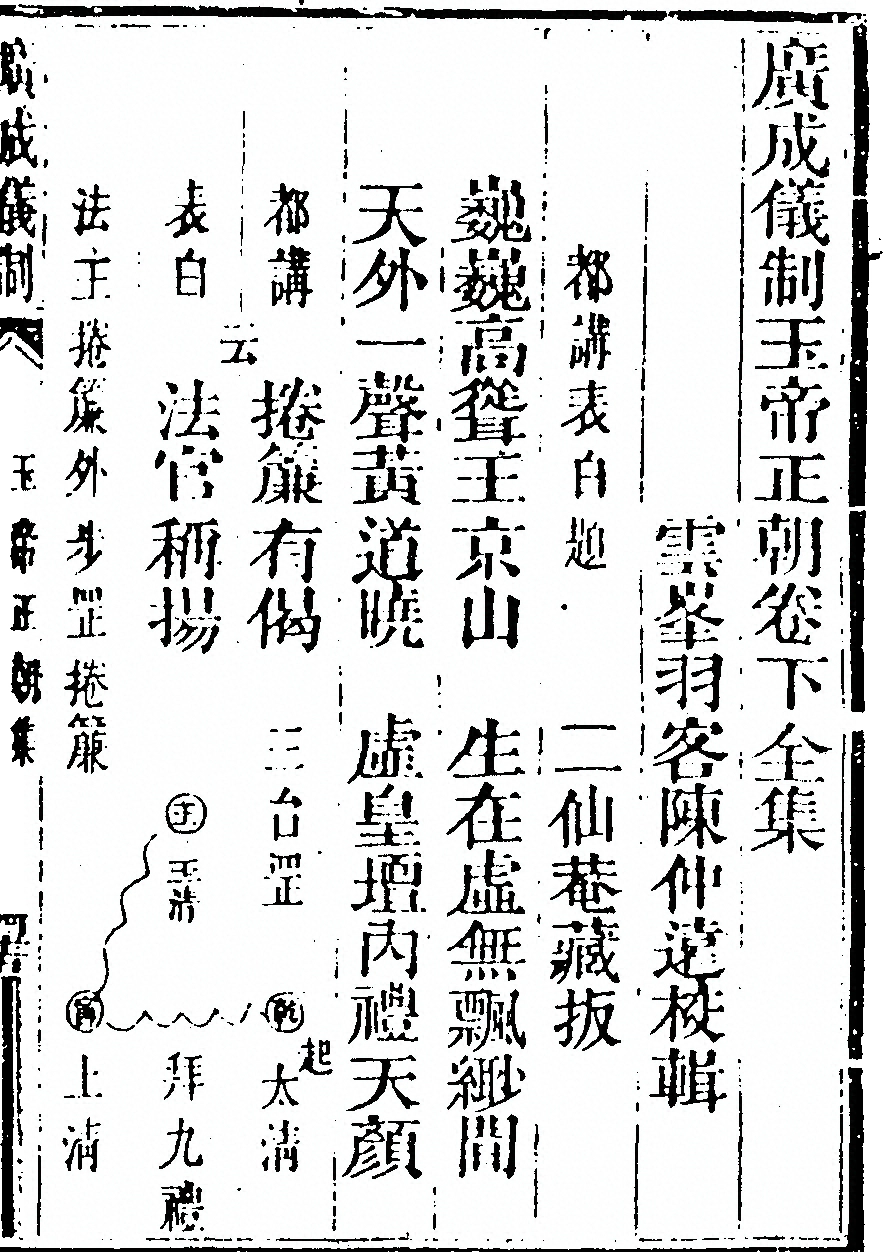 廣成儀制玉帝正朝卷下全集
雲峯羽客陳仲遠校輯
都講表白題 二仙菴藏板
巍巍高聳玉京山 生在虛無飄緲間
天外一聲黃道曉 虛皇壇內禮天顏
都講 云 捲簾有偈 三台罡 乾 起 太清
表白 法官稱揚 玉清 拜九禮
法主捲簾外步罡捲簾 上清
廣成儀制 玉帝正朝集